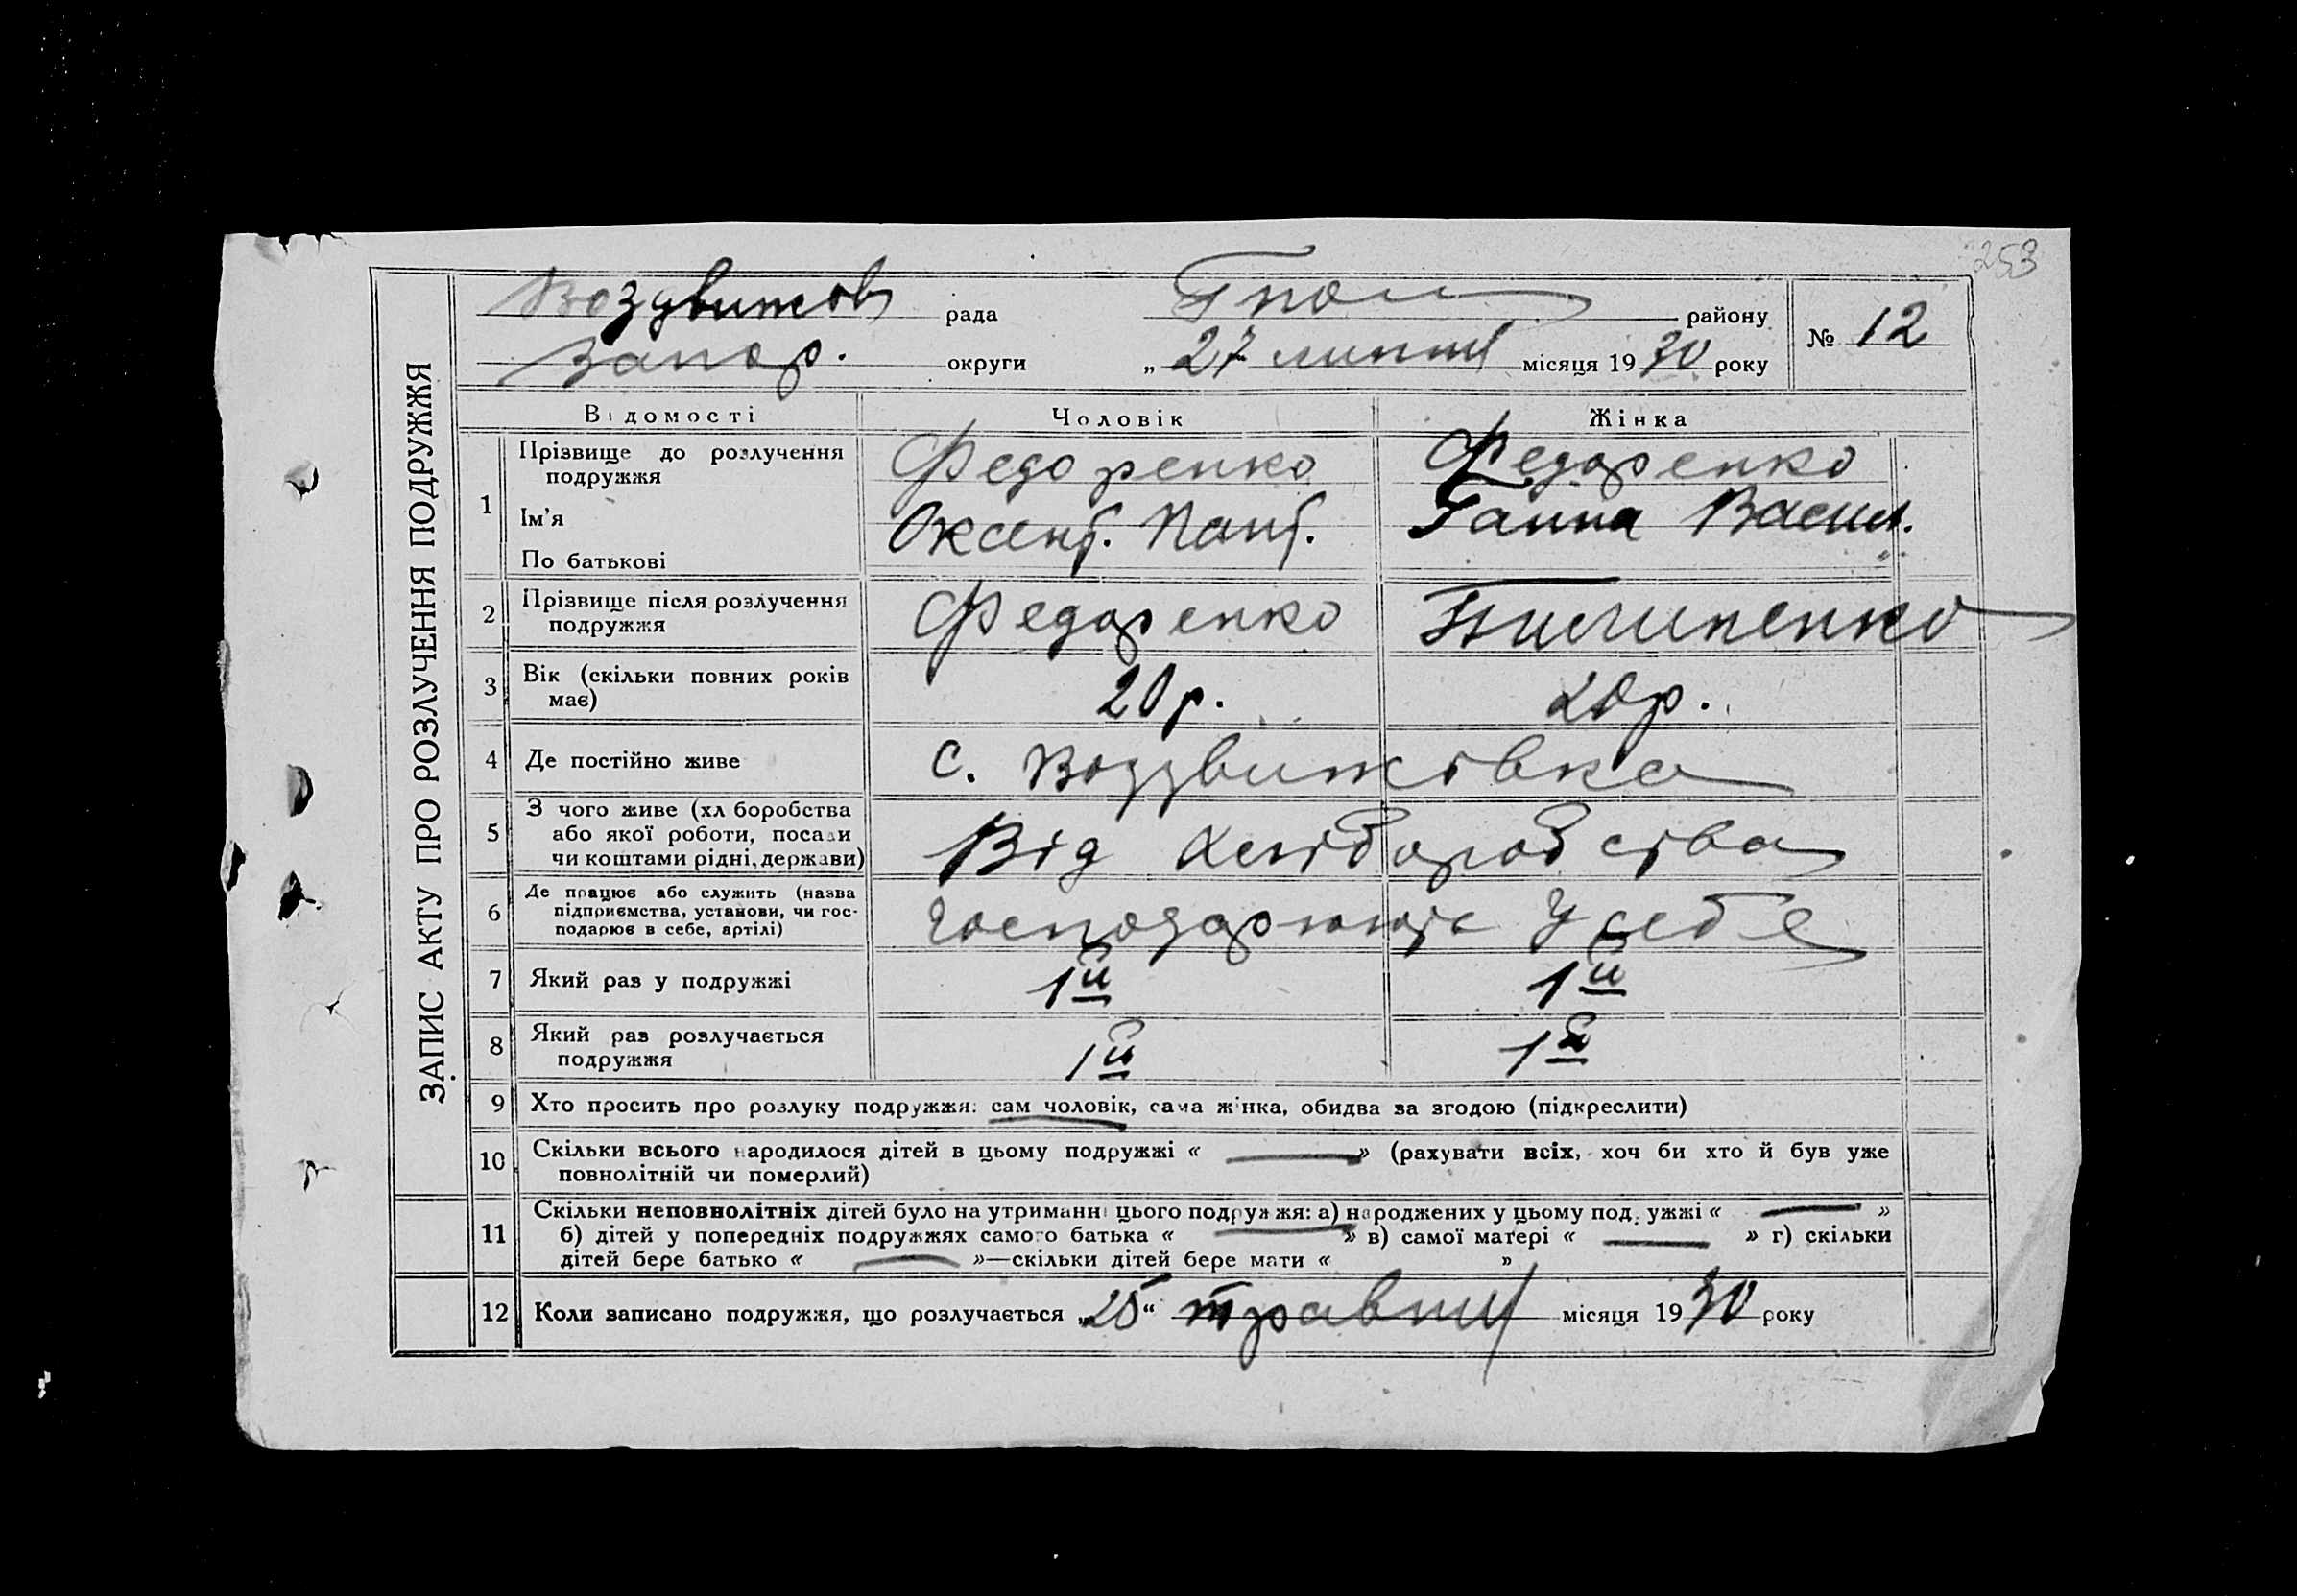 253
Воздвижов рада Гпол району
№ 12
Запор. округи „ 27 липня місяця 1930 року
ЗАПИС АКТУ ПРО РОЗЛУЧЕННЯ ПОДРУЖЖЯ
Відомості Чоловік Жінка
1 Прізвище до розлучення подружжя Федоренко Федоренко
Ім'я Оксент. Пант. Ганна Васил.
По батькові
2 Прізвище після розлучення Федоренко
подружжя
3 Вік (скільки повних років 20 р. 20 р.
має)
4 Де постійно живе с. Воздвижівка
5 З чого живе (хл боробства
або якої роботи, посади Від хліборобства
чи коштами рідні, держави)
6 Де працює або служить (назва
підприємства, установи, чи гос- господарюють у себе
подарює в себе, артілі)
7 Який раз у подружжі 1й 1й
8 Який раз розлучається 1й 1й
подружжя
9 Хто просить про розлуку подружжя: сам чоловік, сама жінка, обидва за згодою (підкреслити)
10 Скільки всього народилося дітей в цьому подружжі « — » (рахувати всіх, хоч би хто й був уже
повнолітній чи померлий)
11 Скільки неповнолітніх дітей було на утриманні цього подружжя: а) народжених у цьому подружжі « — »
б) дітей у попередніх подружжях самого батька « — » в) самої матері « — » г) скільки
дітей бере батько « — »—скільки дітей бере мати « »
12 Коли записано подружжя, що розлучається „25“ травня місяця 1930 року